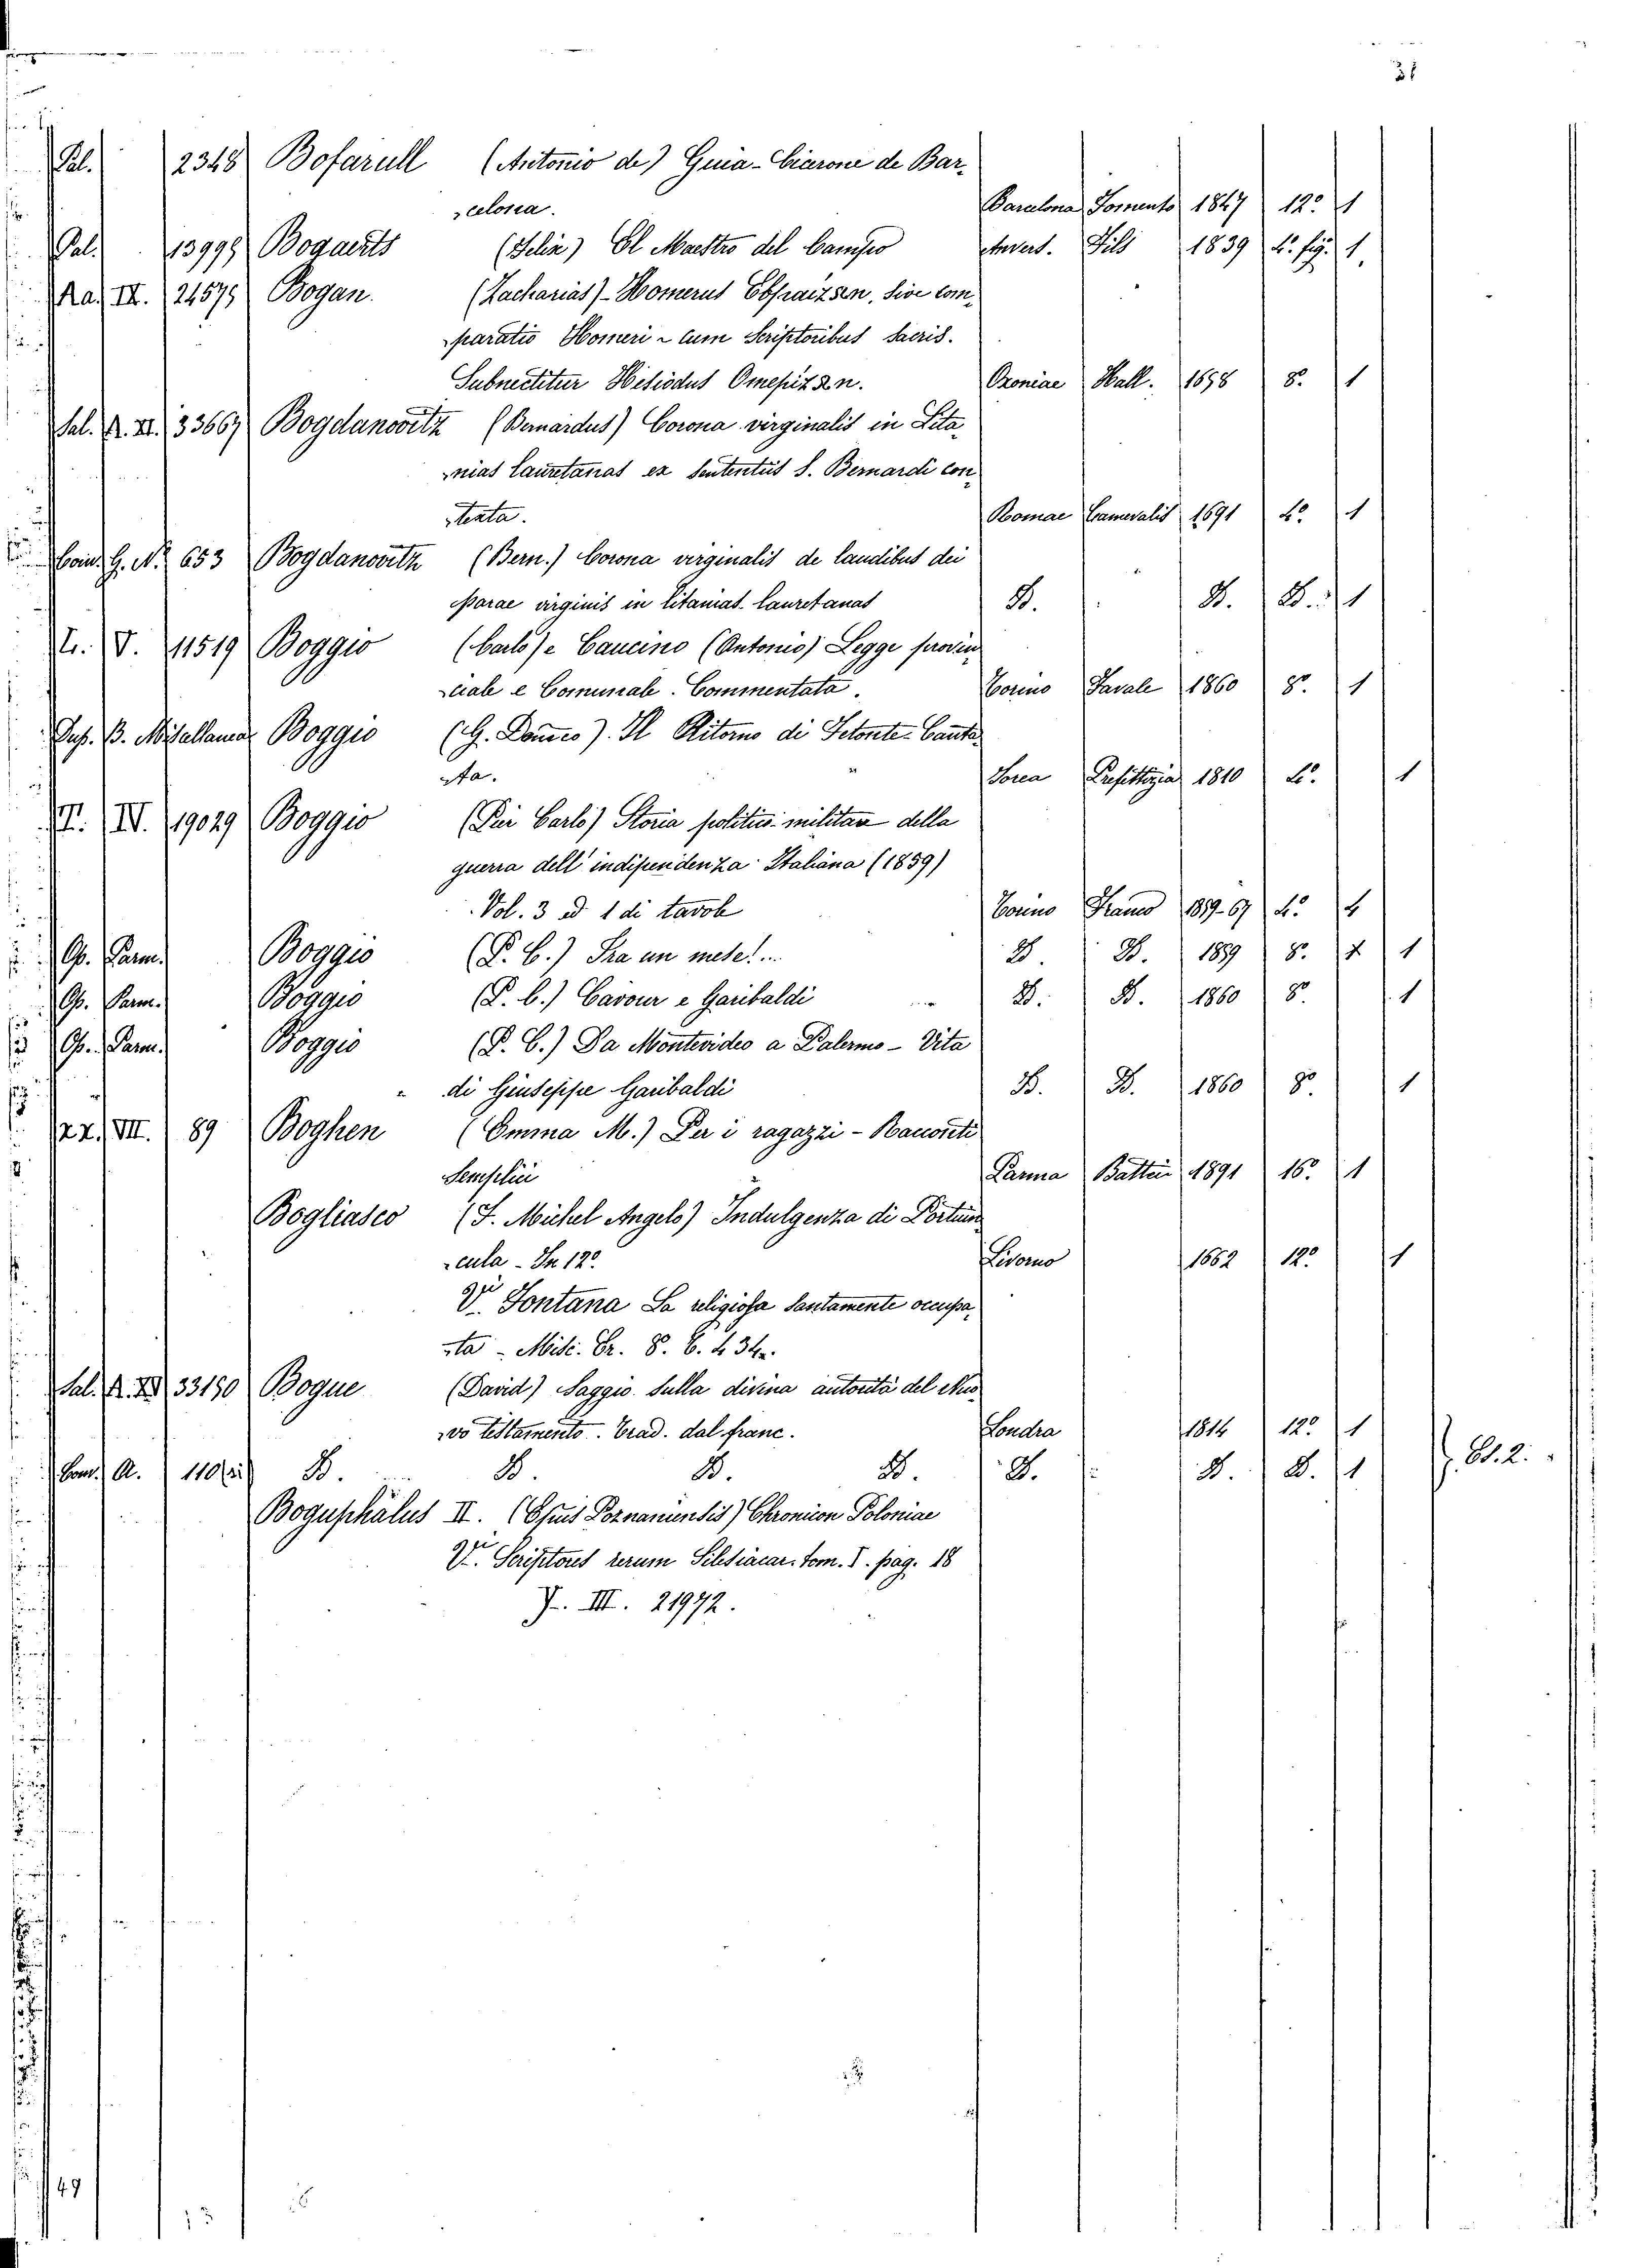 31
Pal. 2348 Bofarull (Antonio de) Guia-Cicerone de Bar-
celona. Barcelona Fomento 1847 12° 1
Pal. 13999 Bogaerts (Felix) El Maestro del Campo Antvert. Fils 1839 4° fig. 1
Aa. IX. 24579 Bogan. (Zacharias) - Homerus Εβραιζων, sive com-
paratio Homeri - cum Scriptoribus sacris.
Subnectitur Hesiodus Ομηριζων. Oxoniae Hall. 1658 8° 1
Sal. R. XI. 33667 Bogdanovitz (Bernardus) Corona virginalis in Lita-
nias lauretanas ex sententiis S. Bernardi con-
texta. Romae Cameralis 1691 4° 1
G. N° 653 Bogdanovitz (Bern.) Corona virginalis de laudibus dei
parae virginis in litanias lauretanas D. D. D. 1
V. 11519 Boggio (Carlo) e Caucino (Antonio) Legge provin-
ciale e Comunale. Commentata. Torino Favale 1860 8° 1
B. Misellanea Boggio (G. Domco). Il Ritorno di Fetonte-Canta-
ta. Ivrea Prefettizia 1810 4° 1
T. IV. 19029 Boggio (Pier Carlo) Storia politico-militare della
guerra dell'indipendenza Italiana (1859)
Vol. 3 ed 1 di tavole Torino Franco 1859-67 4° 4
Op. Parm. Boggio (P. C.) Fra un mese!... D. D. 1859 8° 1
Op. Parm. Boggio (P. C.) Cavour e Garibaldi D. D. 1860 8° 1
Op. Parm. Boggio (P. C.) Da Montevideo a Palermo - Vita
di Giuseppe Garibaldi D. D. 1860 8° 1
zz. VII. 89 Boghen (Emma M.) Per i ragazzi - Racconti
Semplici Parma Battei 1891 16° 1
Bogliasco (F. Michel Angelo) Indulgenza di Portiun-
cula - In 12° Livorno 1662 12° 1
Vi Fontana La religiosa santamente occupa-
ta - Misc. Er. 8° C. 4 34.
Sal. R. XI 33190 Bogue (David) Saggio sulla divina autorità del Nuo-
vo testamento. Trad. dal franc. Londra 1814 12° 1
A. 110 D. D. D. D. D. D. D. 1
Boguphalus II. (Epus Poznaniensis) Chronicon Poloniae
Vi Scriptores rerum Silesiacar. tom. I. pag. 18
Y. III. 21972.
49